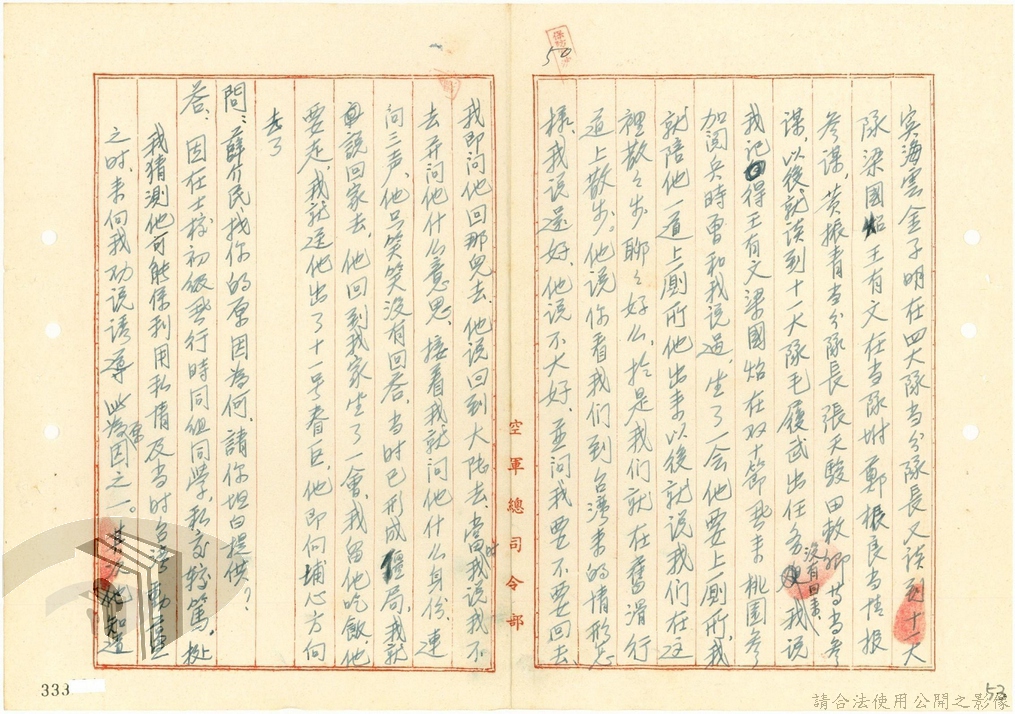 50
賓海雲金子明在四大隊当分隊長又談到十一大
隊梁國焰王有文在当隊附鄭振良当情报
参谋，黄振青当分隊長張天駿田敕卿等当参
谋，以後就谈到十一大隊毛履武出任务沒有回来，我说
我记得王有文梁國焰在双十節飞来桃園参
加阅兵時曾和我说过，坐了一会他要上厠所，我
就陪他一道上厠所他出来以後就说我们在这
裡散々步聊々好么，於是我们就在舊滑行
道上散步。他说你看我们到台湾来的情形怎
様，我说还好，他说不大好，並问我要不要回去，
我即问他回那兒去，他说回到大陆去，当時我说我不
去并问他什么意思，接着我就问他什么身份，連
问三声，他只笑笑没有回答，当时已形成僵局，我就
說回家去，他回到我家坐了一會，我留他吃飯，他
要走，我就送他出了十一号眷區，他即向埔心方向
去了
問：薛介民找你的原因為何，請你坦白提供？
答：因在士校初級飛行時同組同學，私交較篤，
我猜測他可能係利用私情及当时台湾動
之时，来向我劝说誘導，此為原因之一。其次他知道
空軍總司令部
333
53
請合法使用公開之影像